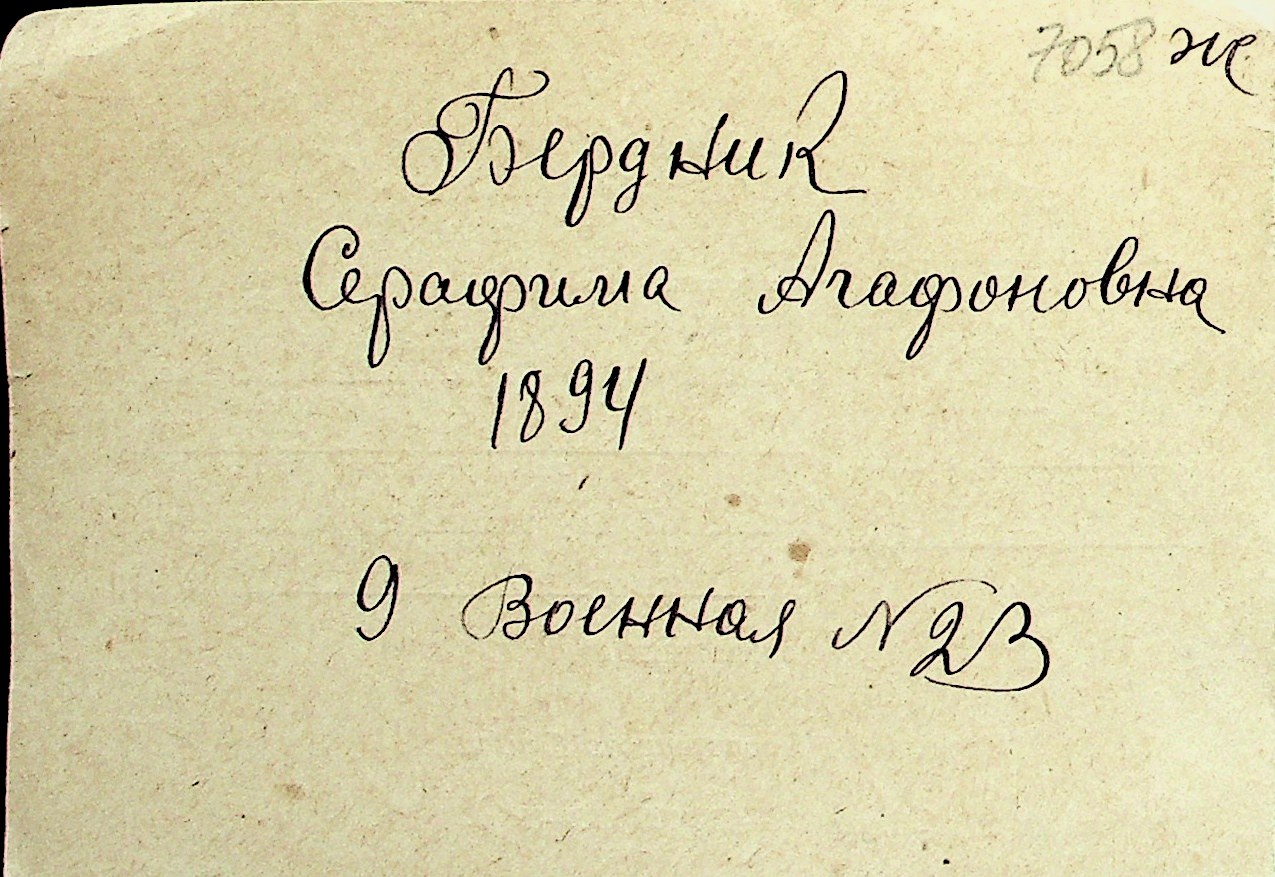 7058 же
Бердник
Серафима Агафоновна
1894
9 Военная №23